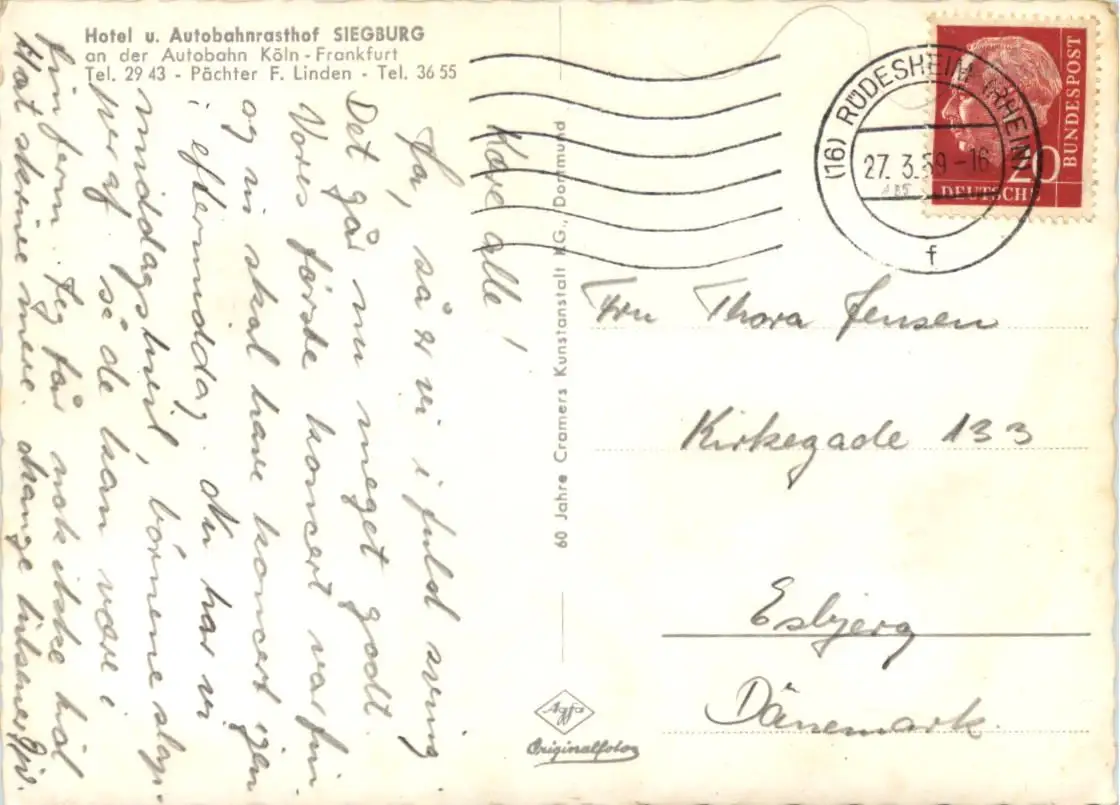 Hotel u. Autobahnrasthof SIEGBURG
an der Autobahn Köln - Frankfurt
Tel. 29 43 - Pächter F. Linden - Tel. 36 55
Kære alle!
Ja, så er vi i fuld sving.
Det går nu meget godt.
Vores første koncert var fin
og vi skal have koncert igen
i eftermiddag. Nu har vi
middagshvil, börnene slap-
per af så de kan være i
fin form. Jeg får nok ikke tid
at skrive mere. Mange hilsener
60 Jahre Cramers Kunstanstalt KG., Dortmund
Agfa
Originalfoto
(16) RÜDESHEIM (RHEIN)
27. 3. 59 - 16
f
20
DEUTSCHE
BUNDESPOST
Fru Thora Jensen
Kirkegade 133
Esbjerg
Dänemark.